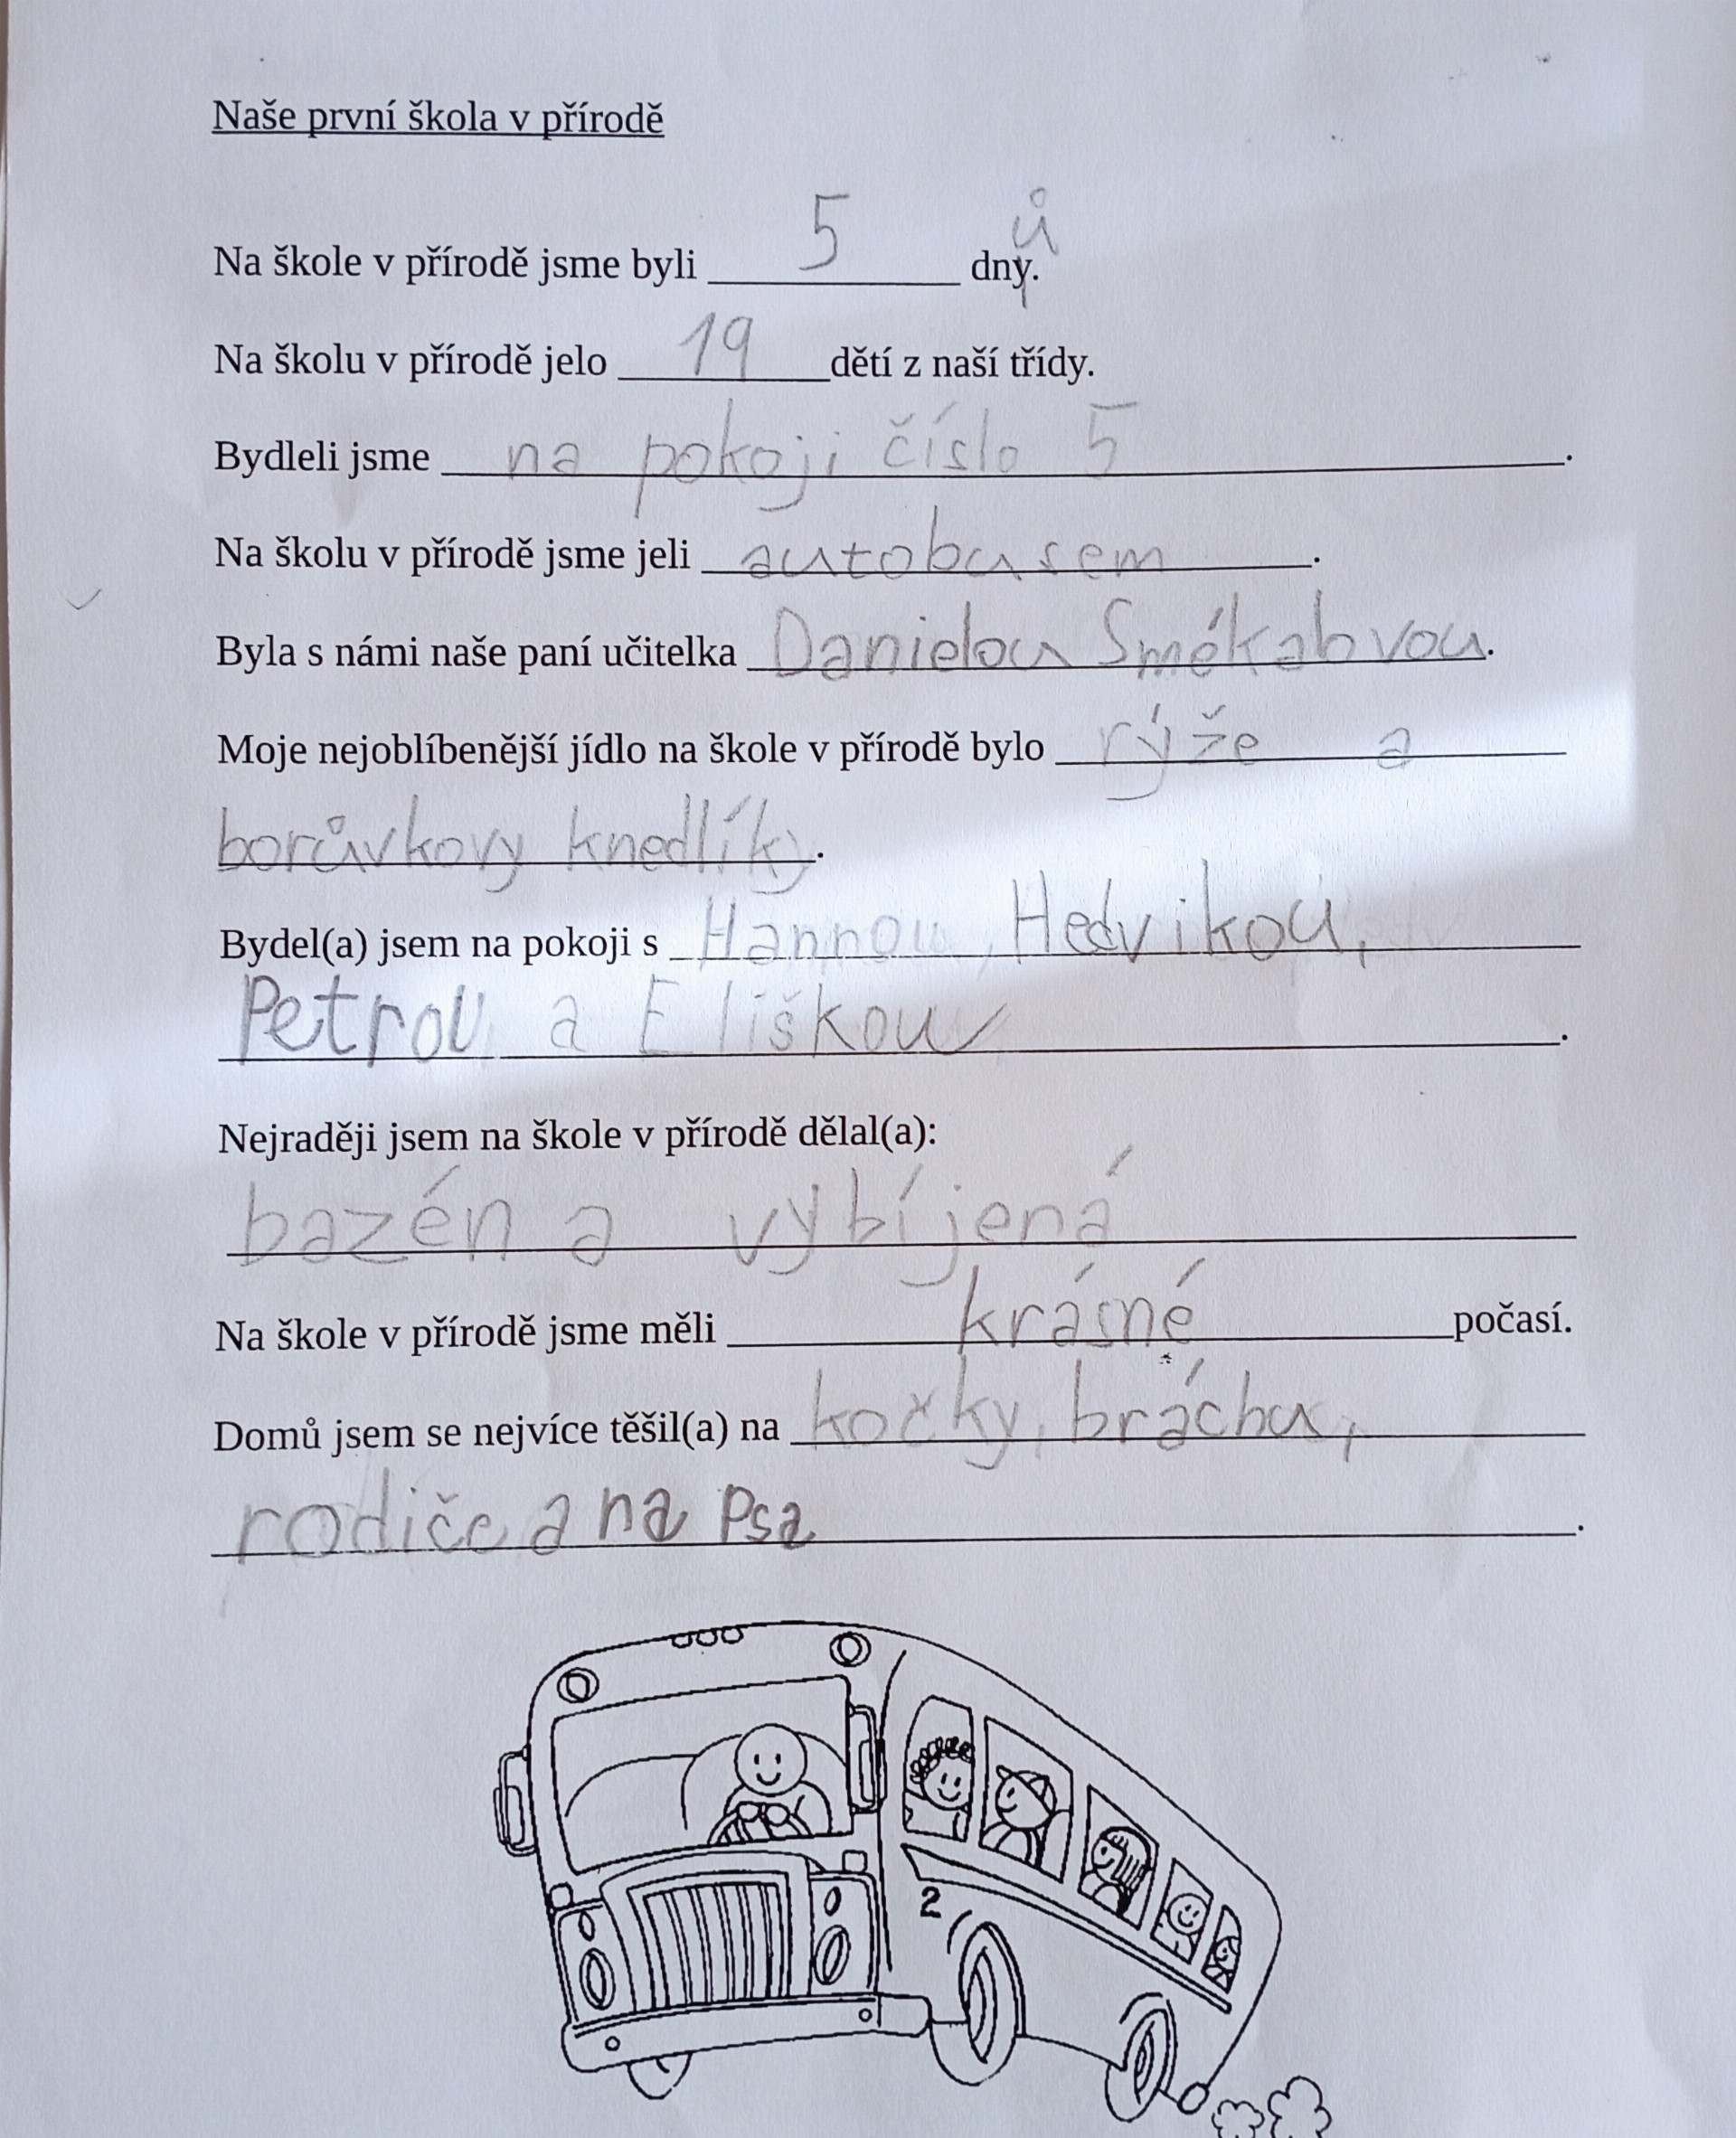 Naše první škola v přírodě
Na škole v přírodě jsme byli 5 dnů.
Na školu v přírodě jelo 19 dětí z naší třídy.
Bydleli jsme na pokoji číslo 5.
Na školu v přírodě jsme jeli autobusem.
Byla s námi naše paní učitelka Danielou Smékabvou.
Moje nejoblíbenější jídlo na škole v přírodě bylo rýže a
borůvkovy knedlíky.
Bydel(a) jsem na pokoji s Hannou, Hedvikou,
Petrou a Eliškou.
Nejraději jsem na škole v přírodě dělal(a):
bazén a vybíjená
Na škole v přírodě jsme měli krásné počasí.
Domů jsem se nejvíce těšil(a) na kočky, bráchu,
rodiče a na Psa.
2